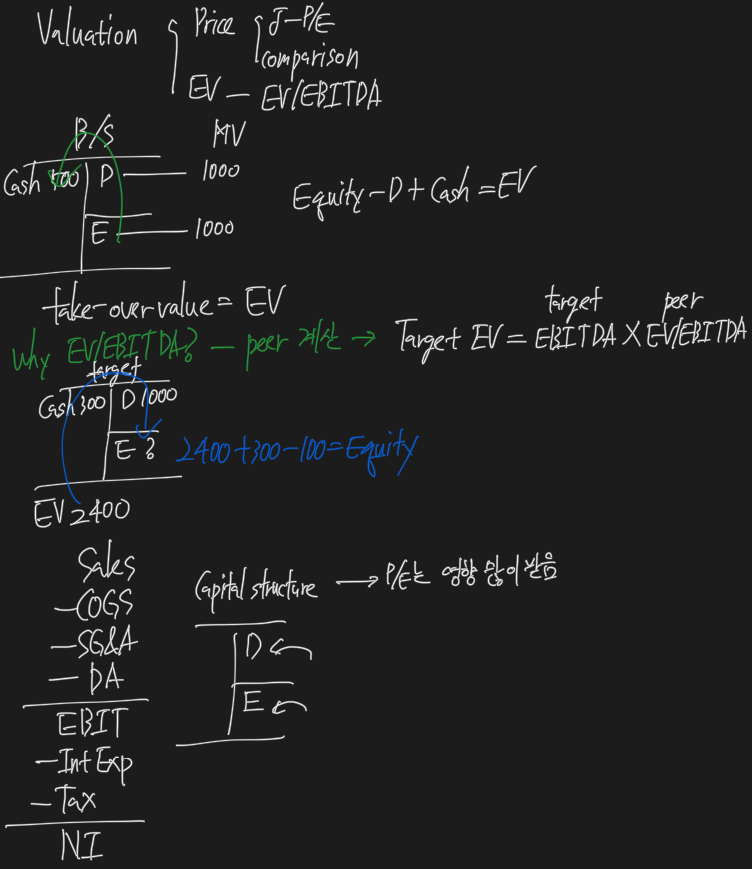 Valuation Price J-P/E
comparison
EV - EV/EBITDA
B/S MV
Cash 500 D 1000
Equity - D + Cash = EV
E 1000
take-over value = EV
Why EV/EBITDA? - peer 계산 → Target EV = EBITDA X EV/EBITDA
target peer
target
Cash 300 D 1000
E ? 2400+300-100=Equity
EV 2400
Sales
-COGS
-SG&A
- DA
EBIT
-Int Exp
- Tax
NI
Capital structure → P/E는 영향 많이 받음
D
E